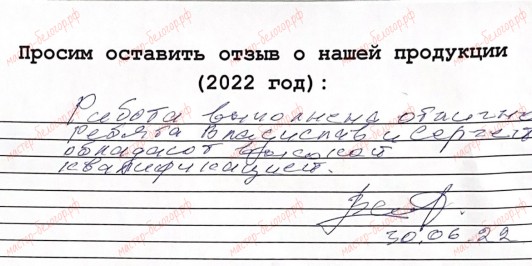 Просим оставить отзыв о нашей продукции
(2022 год):
Работа выполнена отлично
Ребята Владислав и Сергей
обладают высокой
квалификацией.
30.06.22
мастер-белогор.рф